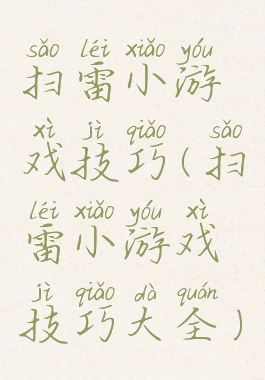 sǎo léi xiǎo yóu
扫雷小游
xì jì qiǎo sǎo
戏技巧(扫
léi xiǎo yóu xì
雷小游戏
jì qiǎo dà quán
技巧大全)